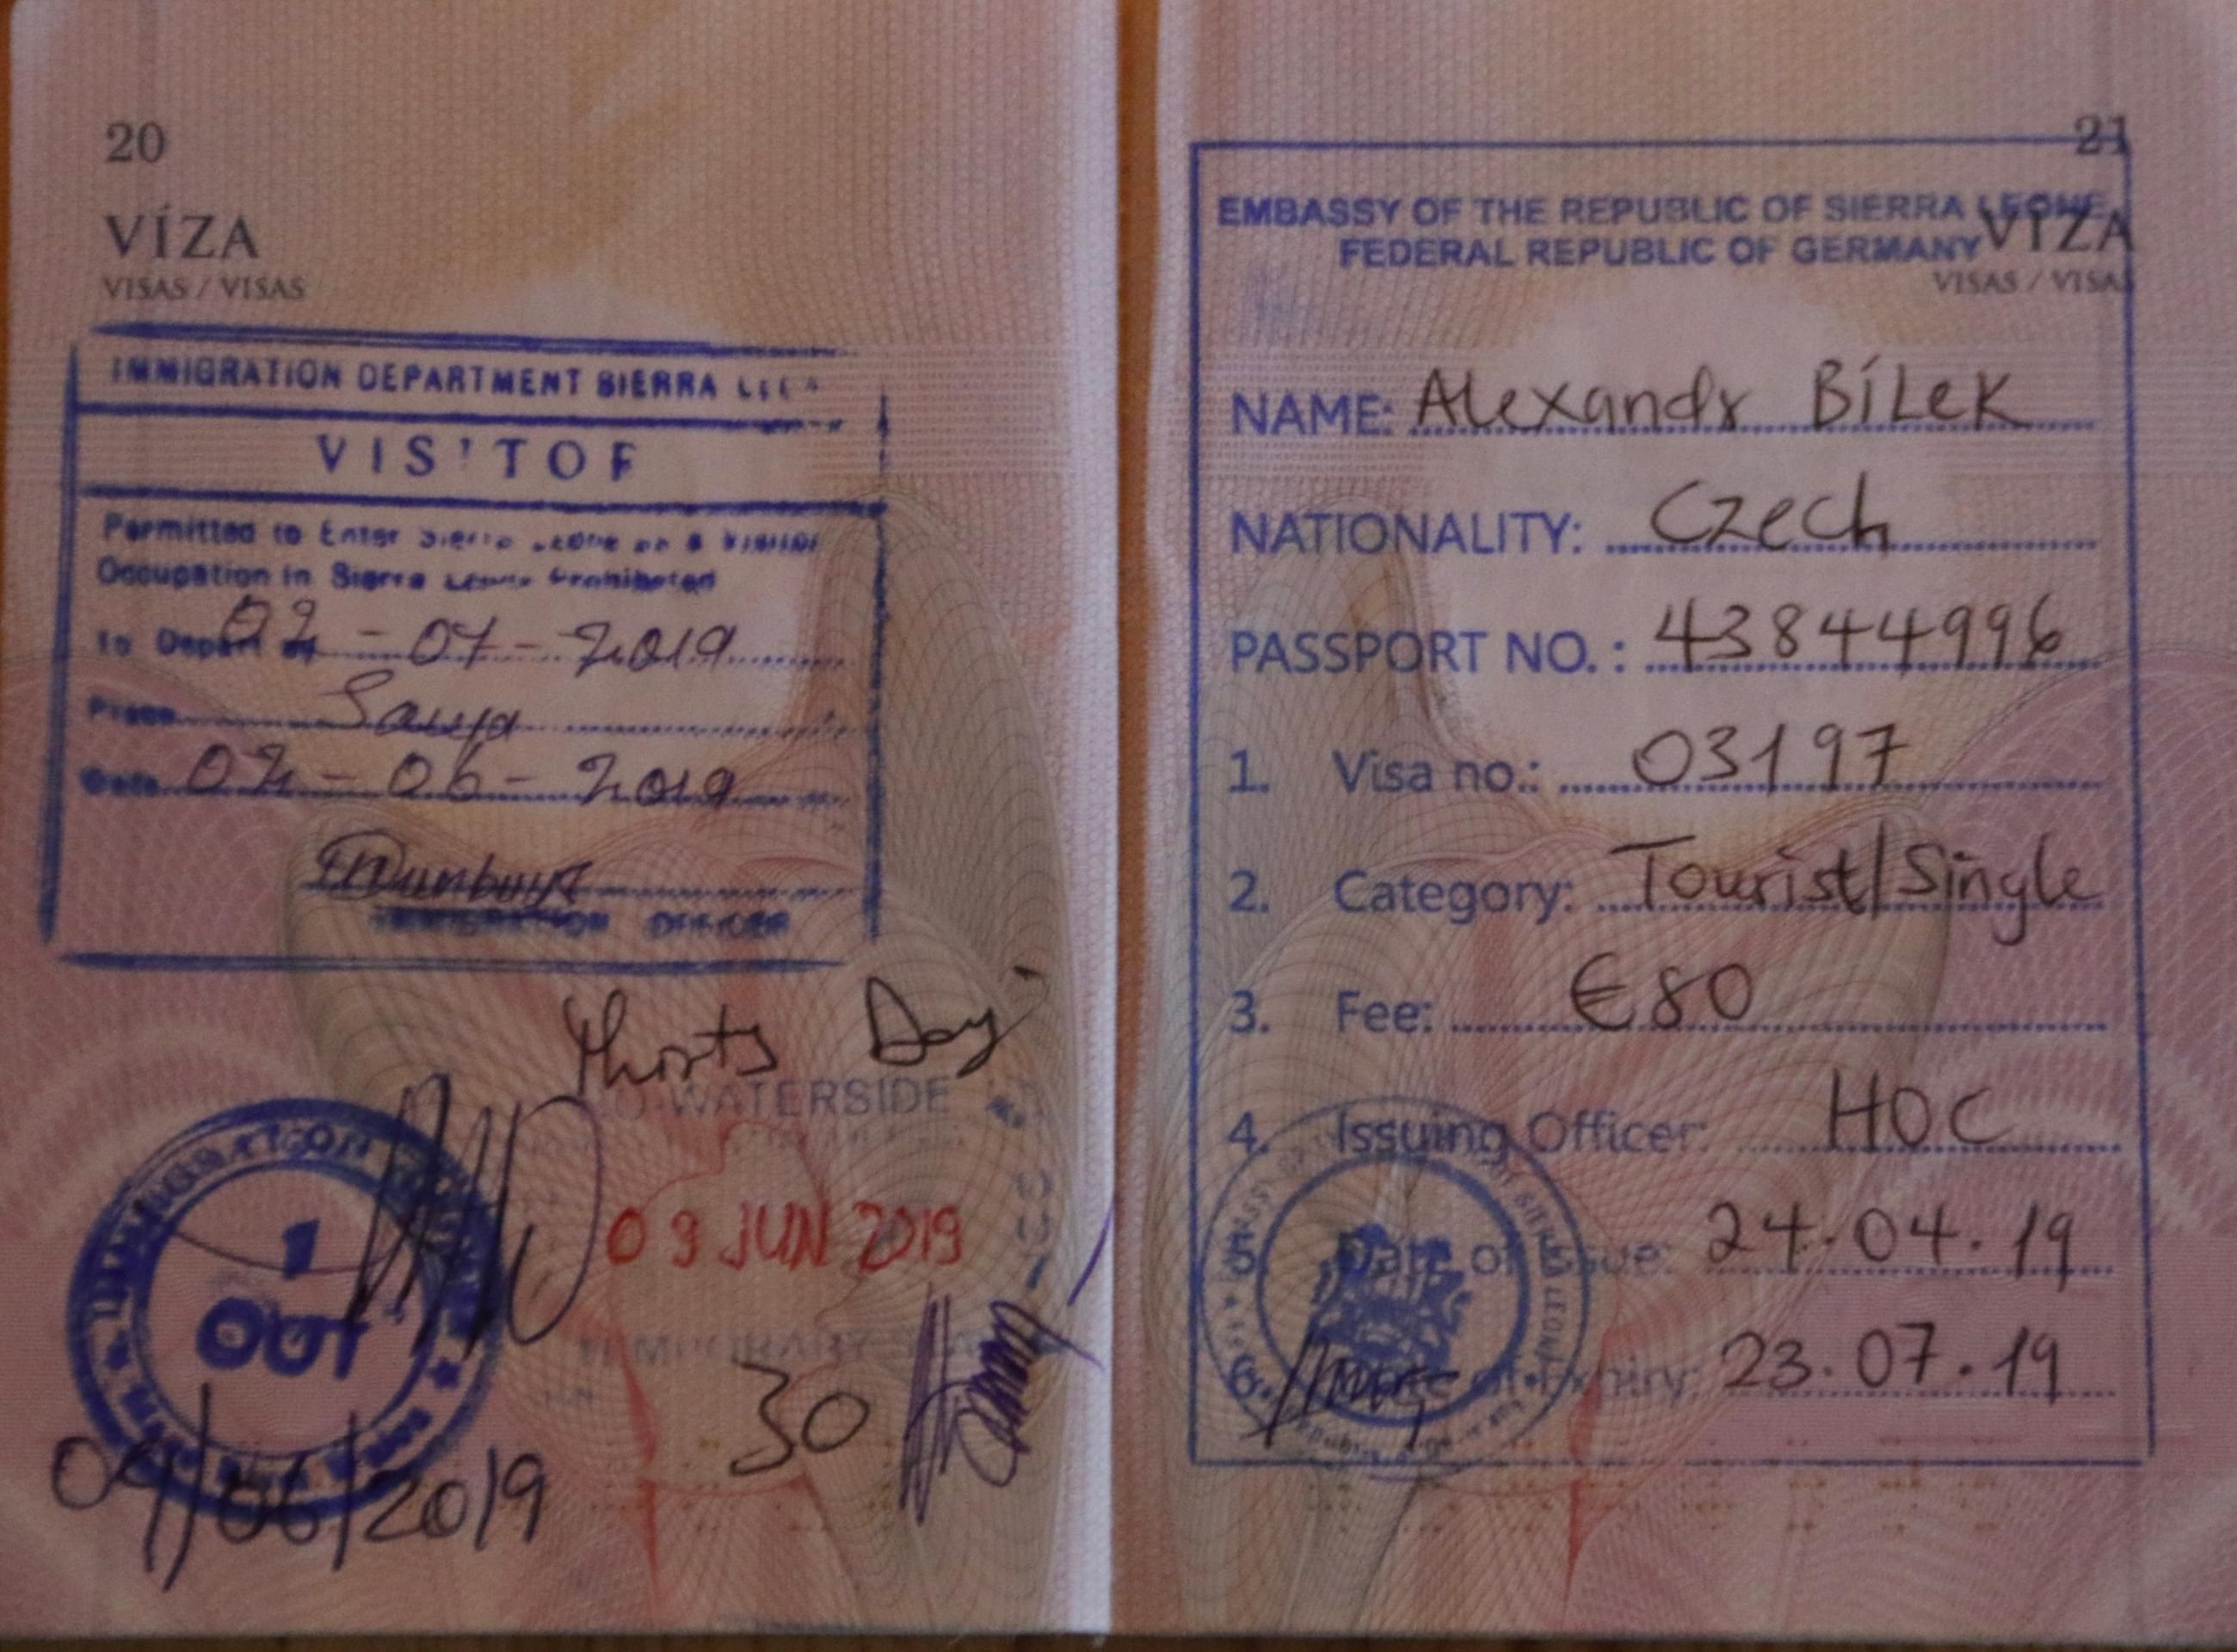 20
VÍZA
VISAS / VISAS
IMMIGRATION DEPARTMENT SIERRA
VISITOR
Permitted to Enter Sierra Leone as a Visitor
Occupation in Sierra Leone Prohibited
To Depart 02-07-2019
Place
Date 02-06-2019
IMMIGRATION OFFICER
Day
WATERSIDE
1
OUT
09 JUN 2019
TEMPORARY
30
09/06/2019
21
VÍZA
VISAS / VISA
EMBASSY OF THE REPUBLIC OF SIERRA LEONE
FEDERAL REPUBLIC OF GERMANY
NAME: Alexandr BÍLEK
NATIONALITY: Czech
PASSPORT NO.: 43844996
1. Visa no.: 03197
2. Category: Tourist/Single
3. Fee: €80
4. Issuing Officer: HOC
5. Date of Issue: 24.04.19
6. Date of Expiry: 23.07.19